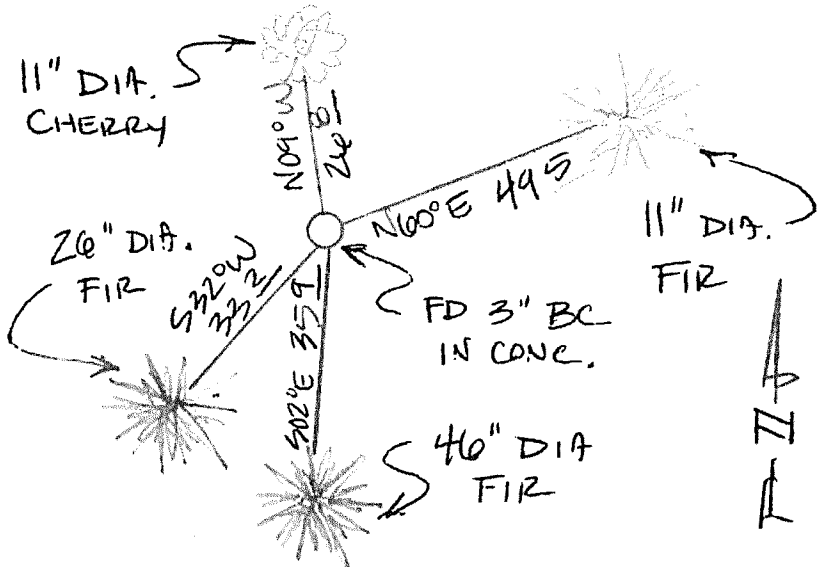 11" DIA.
CHERRY
N09°W
26 8
N60°E 49 5
11" DIA.
FIR
26" DIA.
FIR
S32°W
33 2
S02°E 35 9
FD 3" BC
IN CONC.
46" DIA
FIR
N